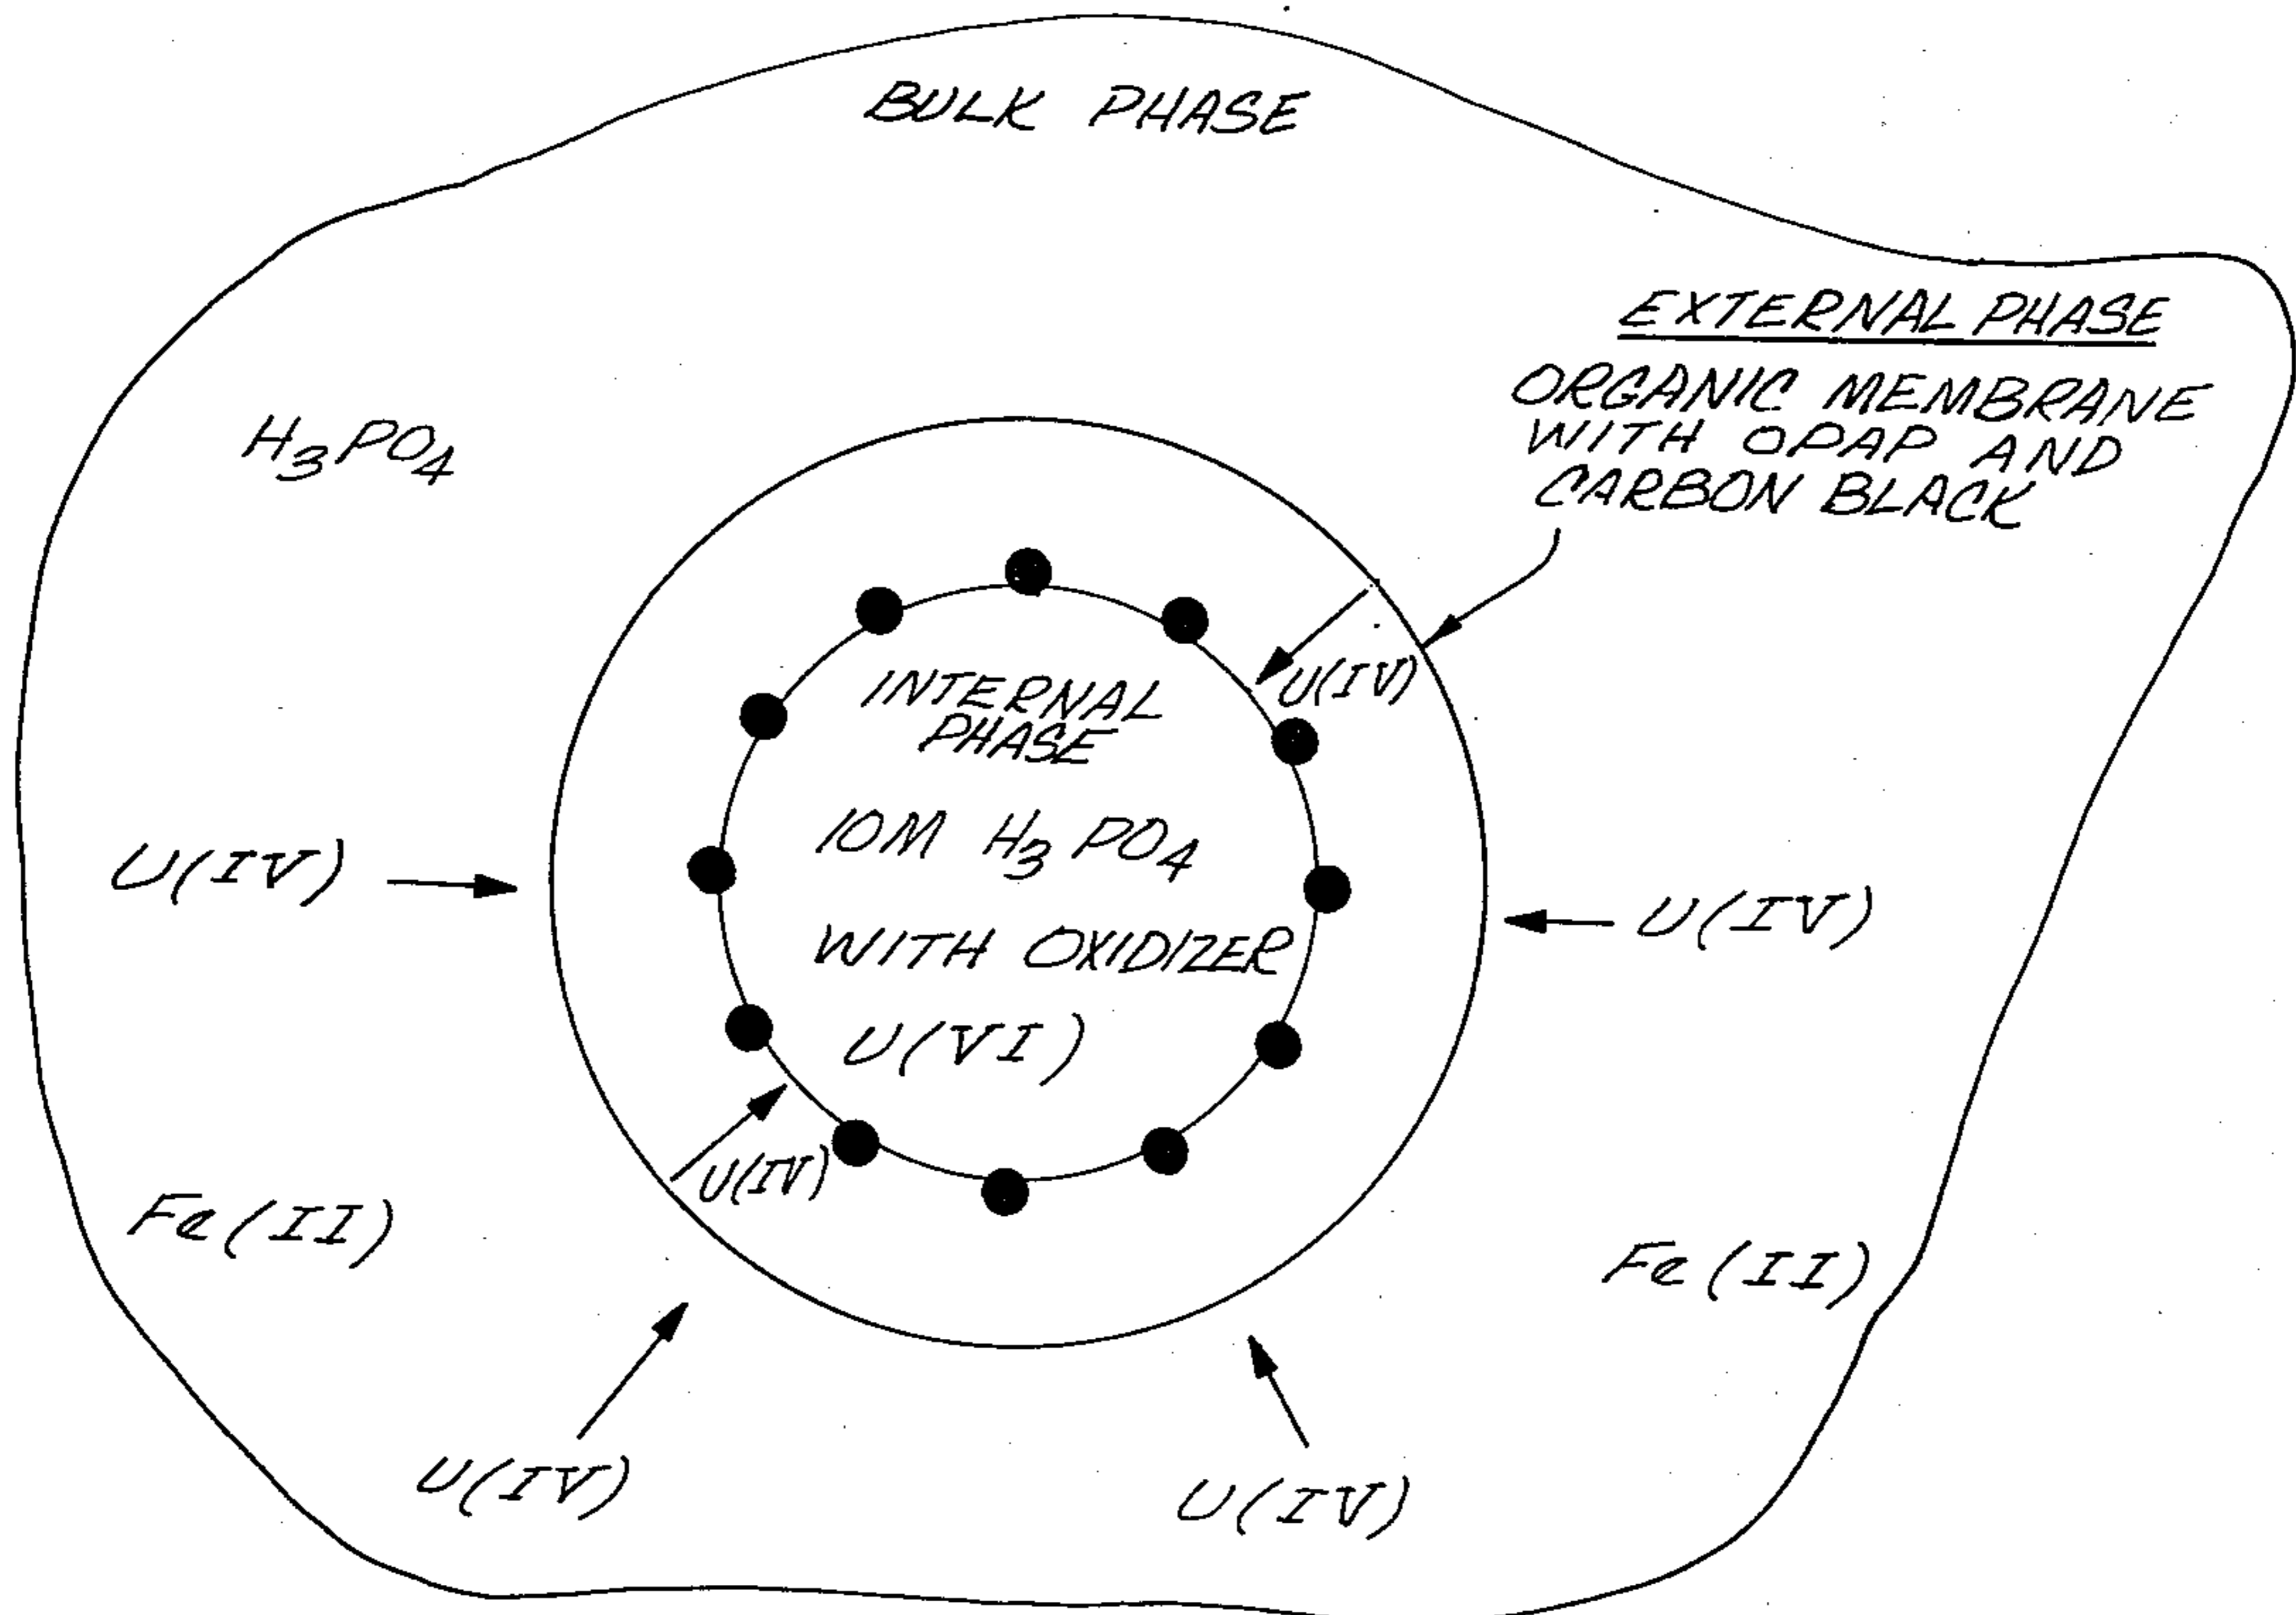 BULK PHASE
EXTERNAL PHASE
ORGANIC MEMBRANE
WITH OPAP AND
CARBON BLACK
H₃PO₄
U(IV)
INTERNAL
PHASE
10M H₃PO₄
WITH OXIDIZER
U(VI)
U(IV)
U(IV)
U(IV)
Fe(II)
Fe(II)
U(IV)
U(IV)